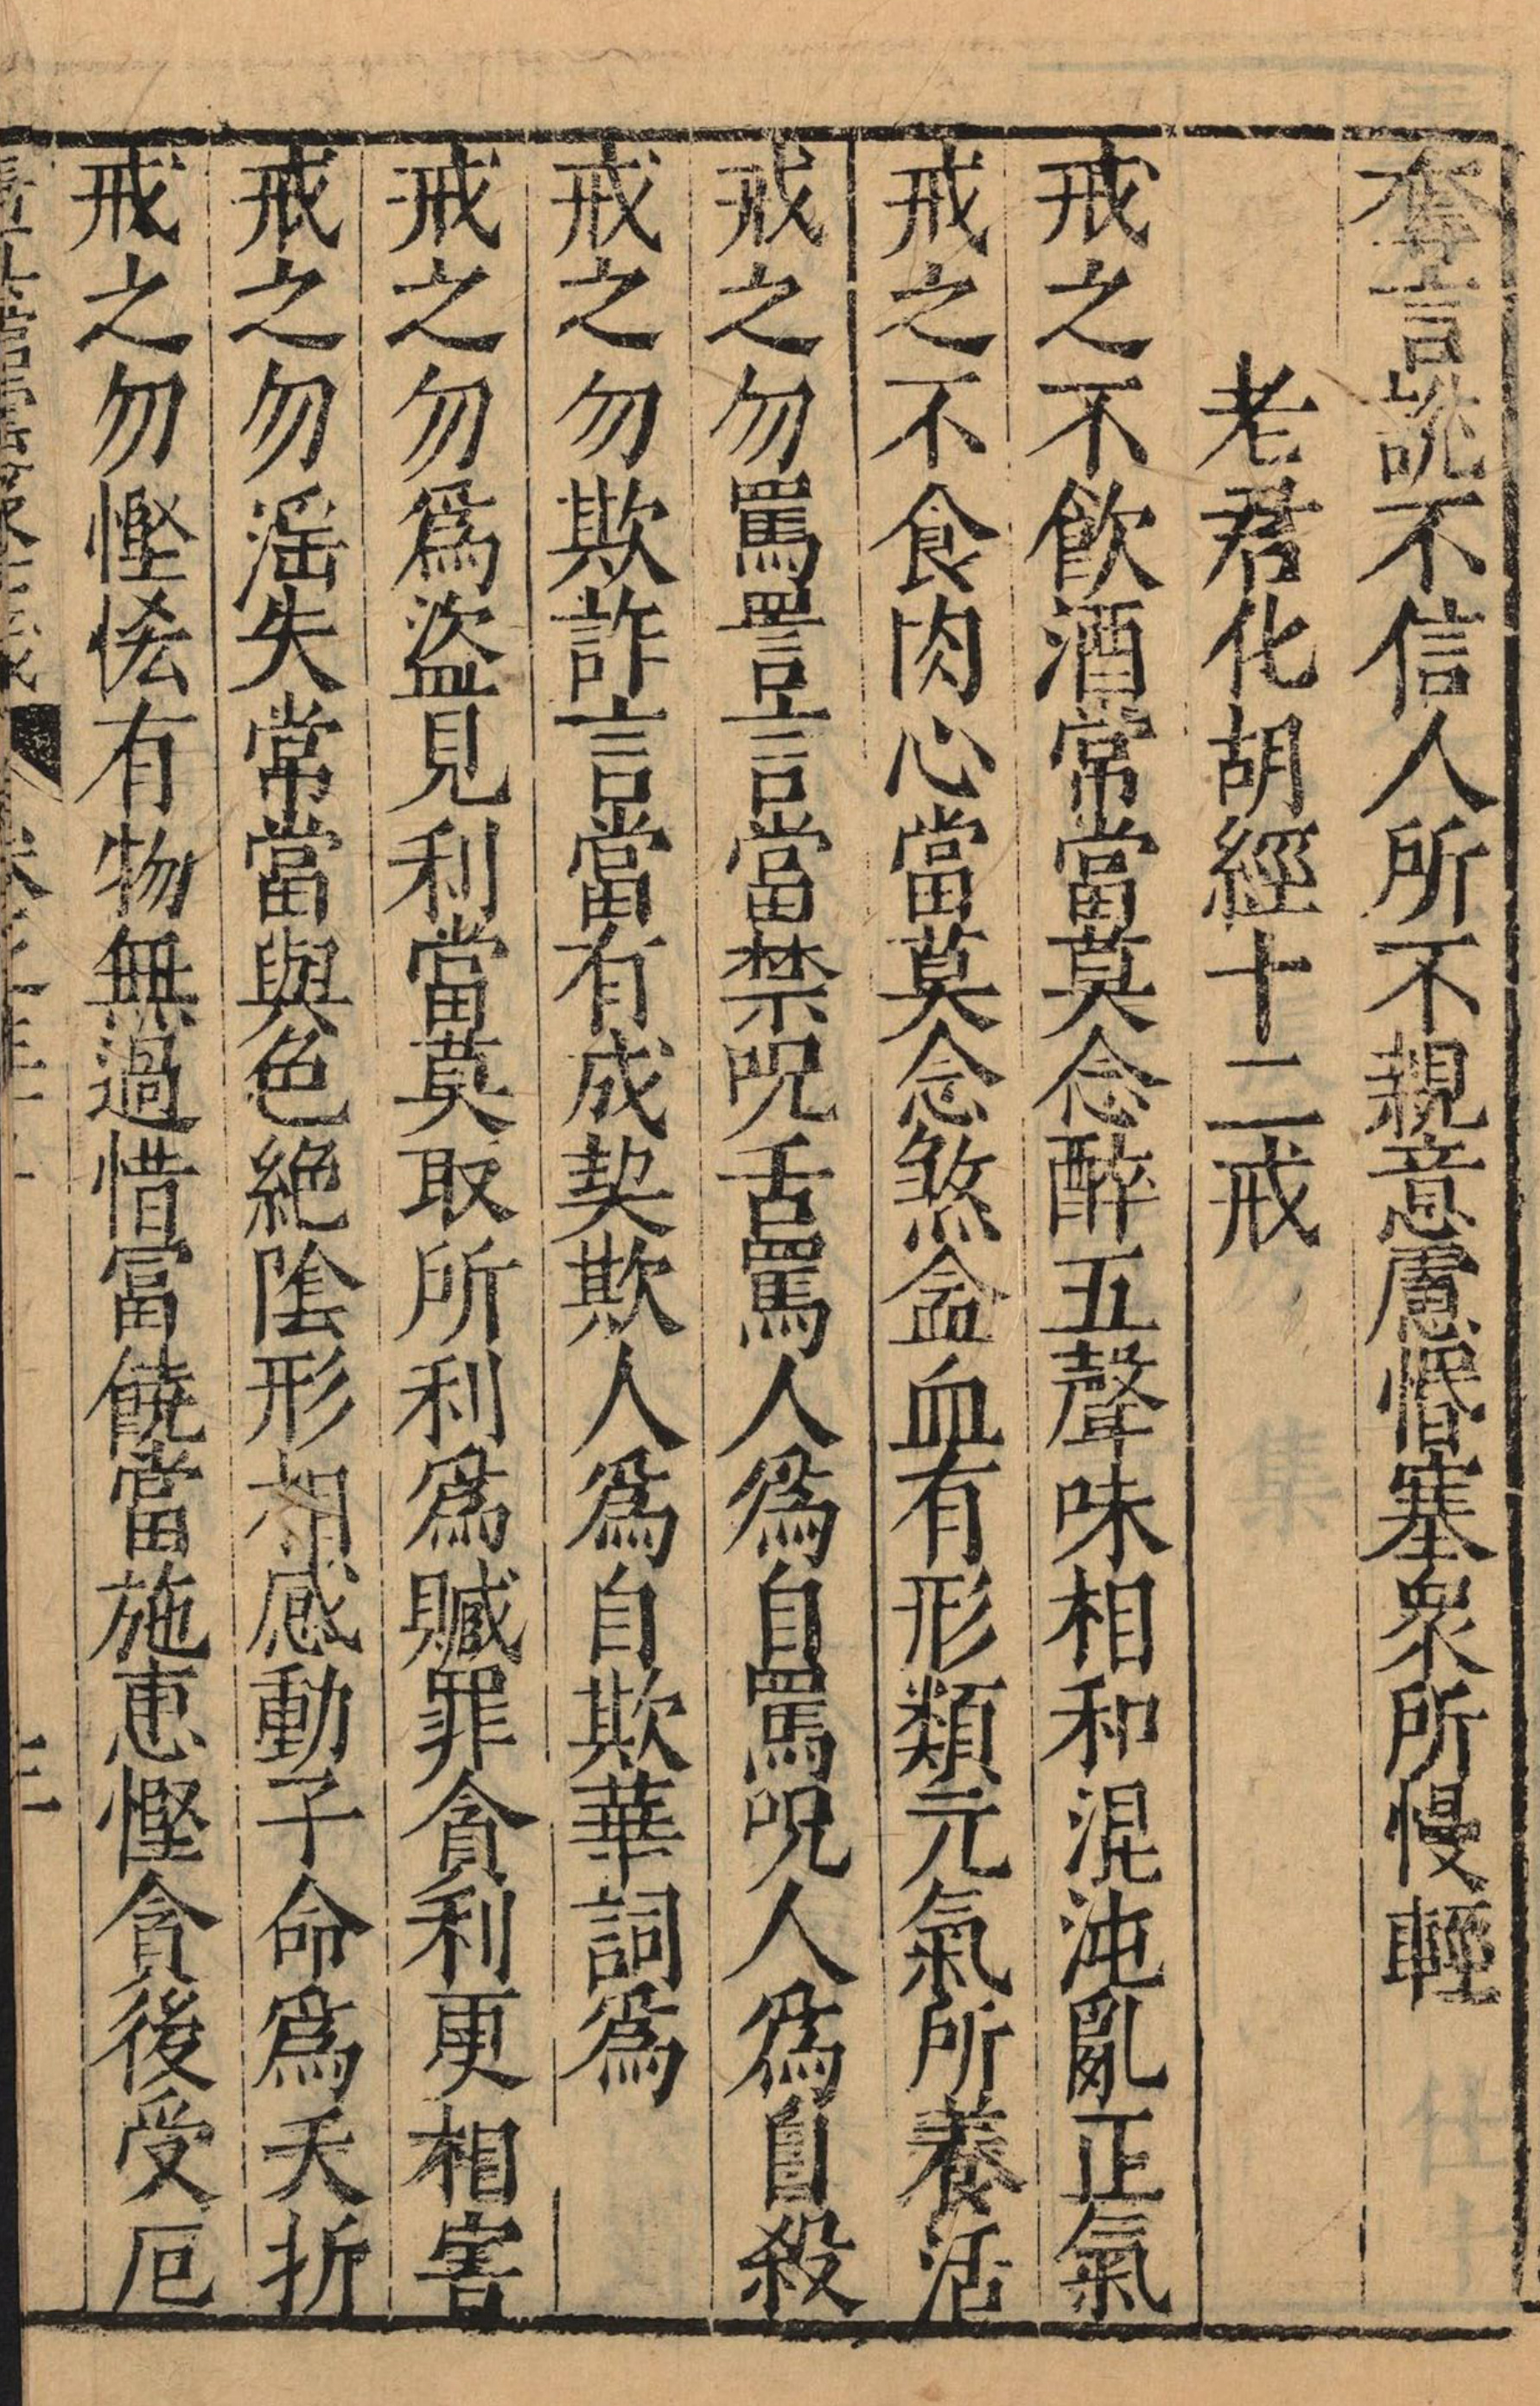 奪言說不信人所不親意慮惛塞眾所慢輕
老君化胡經十二戒
戒之不飲酒常當莫念醉五聲味相和混沌亂正氣
戒之不食肉心當莫念煞盒血有形類元氣所養活
戒之勿罵詈言當禁呪舌罵人爲自罵呪人爲自殺
戒之勿欺詐言當有成契欺人爲自欺華詞爲
戒之勿爲盜見利當莫取所利爲贓罪貪利更相害
戒之勿滛失常當與色絶陰形相感動子命爲夭折
戒之勿慳悋有物無過惜富饒當施恵慳貪後受厄
三